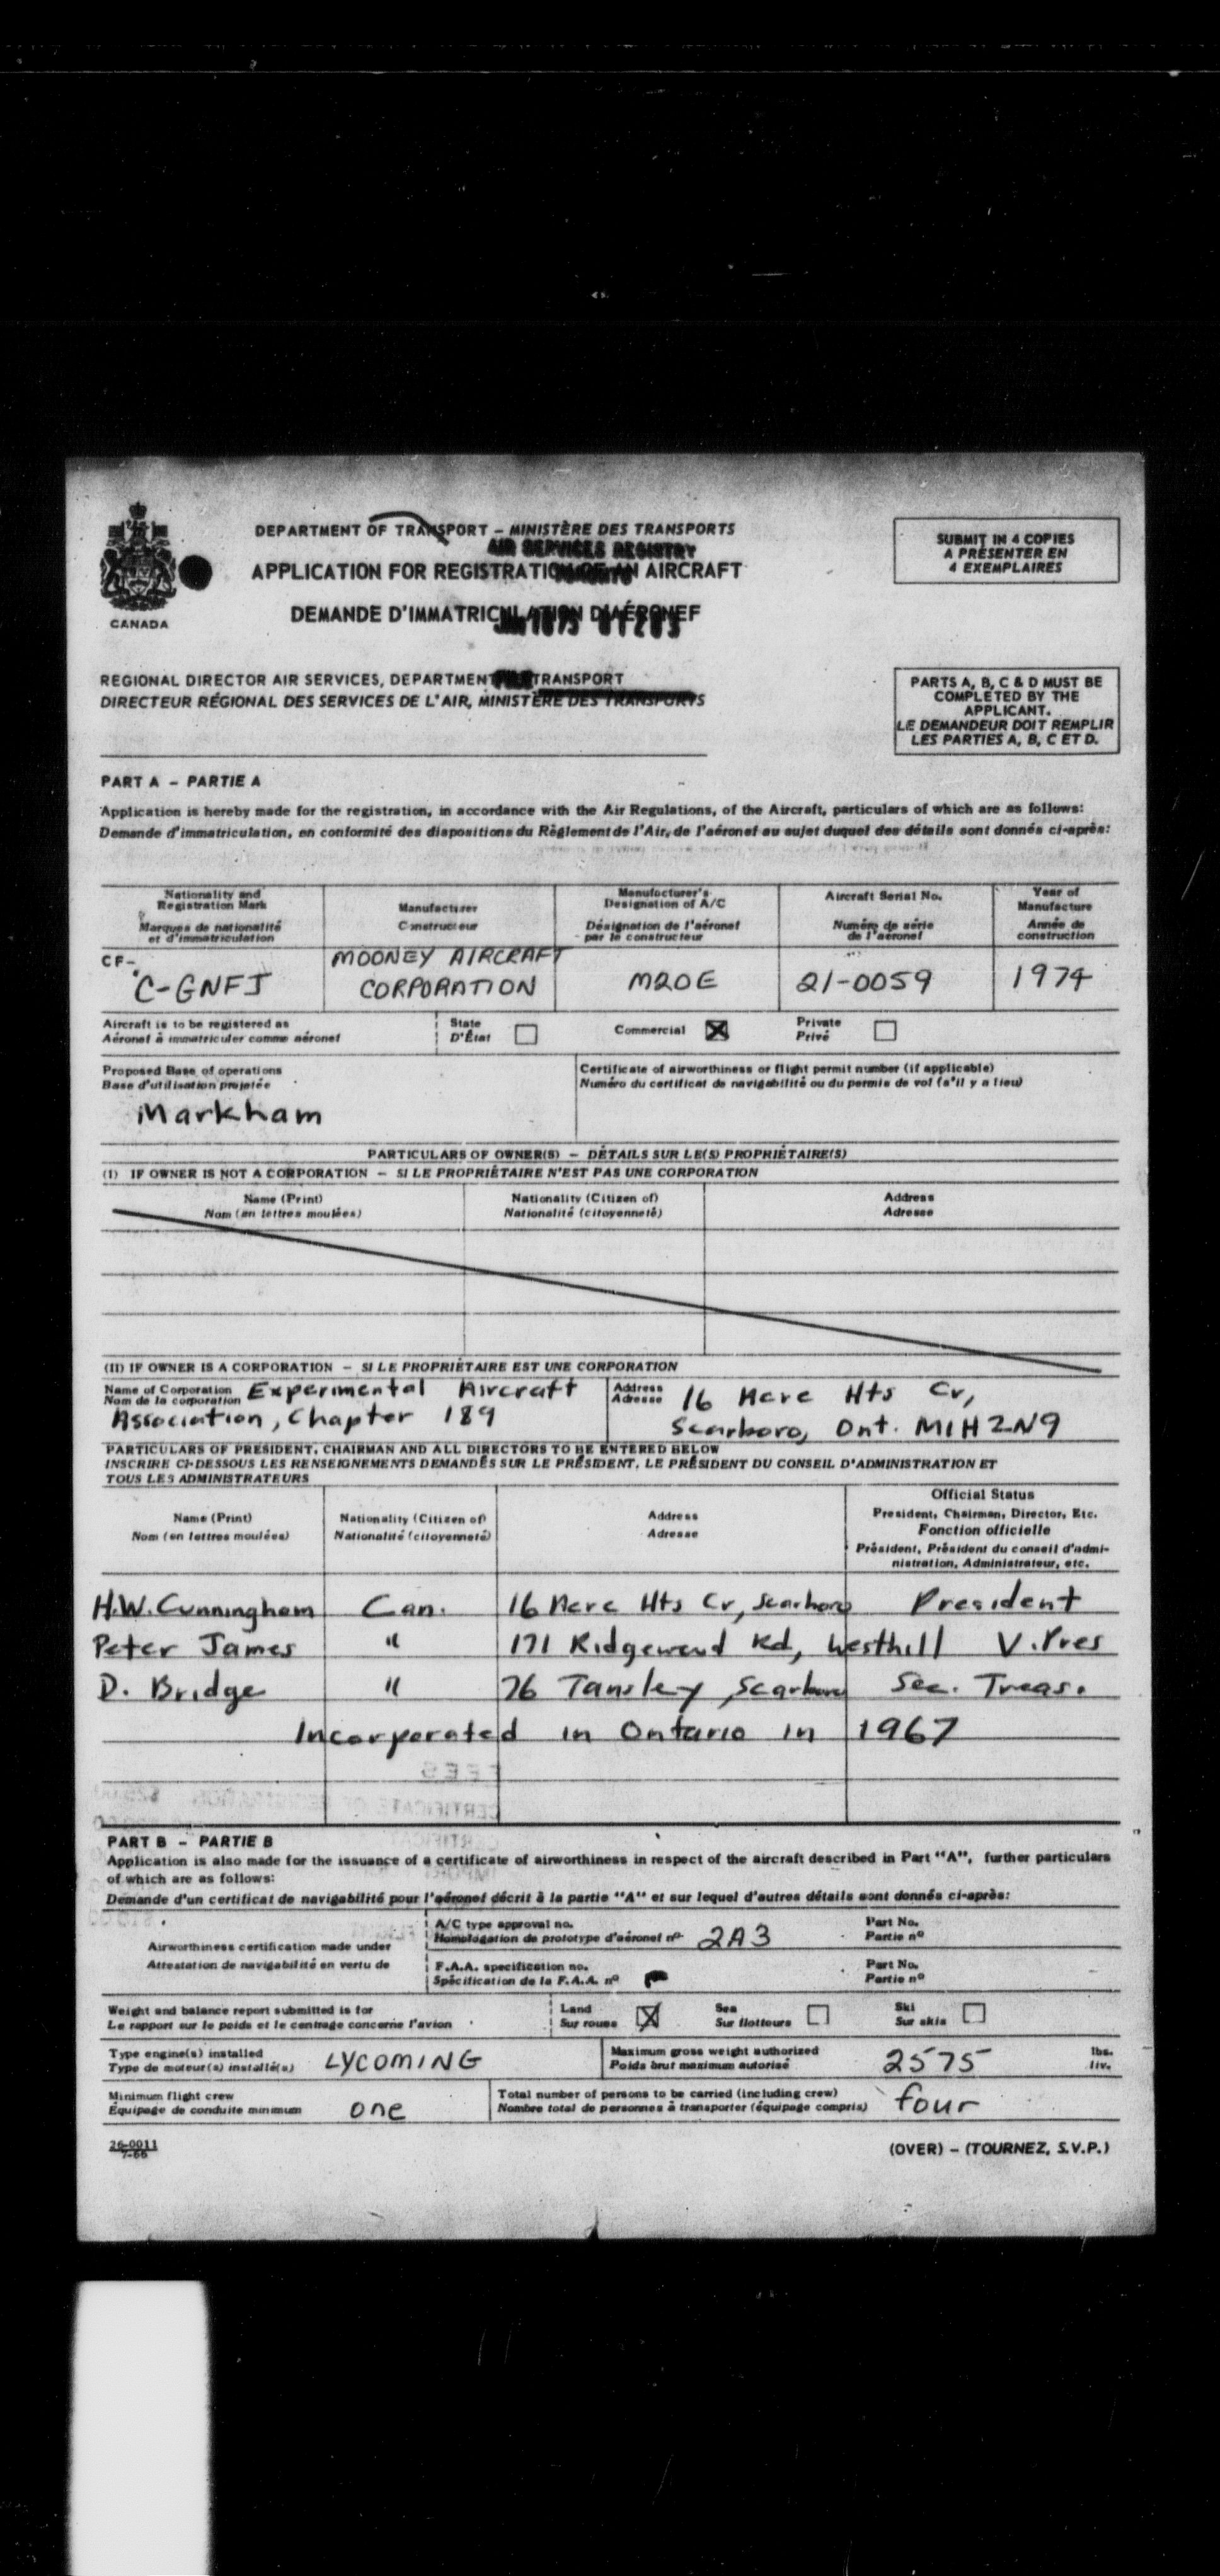 DEPARTMENT OF TRANSPORT – MINISTÈRE DES TRANSPORTS
AIR SERVICES REGISTRY
APPLICATION FOR REGISTRATION OF AN AIRCRAFT
DEMANDE D'IMMATRICULATION D'AÉRONEF
CANADA
SUBMIT IN 4 COPIES
A PRÉSENTER EN
4 EXEMPLAIRES
REGIONAL DIRECTOR AIR SERVICES, DEPARTMENT TRANSPORT
DIRECTEUR RÉGIONAL DES SERVICES DE L'AIR, MINISTÈRE DES TRANSPORTS
PARTS A, B, C & D MUST BE
COMPLETED BY THE
APPLICANT.
LE DEMANDEUR DOIT REMPLIR
LES PARTIES A, B, C ET D.
PART A – PARTIE A
Application is hereby made for the registration, in accordance with the Air Regulations, of the Aircraft, particulars of which are as follows:
Demande d'immatriculation, en conformité des dispositions du Règlement de l'Air, de l'aéronef au sujet duquel des détails sont donnés ci-après:
Nationality and Registration Mark
Marques de nationalité et d'immatriculation
Manufacturer
Constructeur
Manufacturer's Designation of A/C
Désignation de l'aéronef par le constructeur
Aircraft Serial No.
Numéro de série de l'aéronef
Year of Manufacture
Année de construction
CF-
C-GNFJ
MOONEY AIRCRAFT
CORPORATION
M20E
21-0059
1974
Aircraft is to be registered as
Aéronef à immatriculer comme aéronef
State
D'État
Commercial
Private
Privé
Proposed Base of operations
Base d'utilisation projetée
Markham
Certificate of airworthiness or flight permit number (if applicable)
Numéro du certificat de navigabilité ou du permis de vol (s'il y a lieu)
PARTICULARS OF OWNER(S) – DÉTAILS SUR LE(S) PROPRIÉTAIRE(S)
(I) IF OWNER IS NOT A CORPORATION – SI LE PROPRIÉTAIRE N'EST PAS UNE CORPORATION
Name (Print)
Nom (en lettres moulées)
Nationality (Citizen of)
Nationalité (citoyenneté)
Address
Adresse
(II) IF OWNER IS A CORPORATION – SI LE PROPRIÉTAIRE EST UNE CORPORATION
Name of Corporation
Nom de la corporation
Experimental Aircraft
Association, Chapter 189
Address
Adresse
16 Hts Cr,
Scarboro, Ont. M1H2N9
PARTICULARS OF PRESIDENT, CHAIRMAN AND ALL DIRECTORS TO BE ENTERED BELOW
INSCRIRE CI-DESSOUS LES RENSEIGNEMENTS DEMANDÉS SUR LE PRÉSIDENT, LE PRÉSIDENT DU CONSEIL D'ADMINISTRATION ET
TOUS LES ADMINISTRATEURS
Name (Print)
Nom (en lettres moulées)
Nationality (Citizen of)
Nationalité (citoyenneté)
Address
Adresse
Official Status
President, Chairman, Director, Etc.
Fonction officielle
Président, Président du conseil d'admi-
nistration, Administrateur, etc.
H.W. Cunningham Can. 16 Hts Cr, Scarboro President
Peter James " 171 Ridgewood Rd, Westhill V.Pres
D. Bridge " 76 Tansley, Scarboro Sec. Treas.
Incorporated in Ontario in 1967
PART B – PARTIE B
Application is also made for the issuance of a certificate of airworthiness in respect of the aircraft described in Part "A", further particulars
of which are as follows:
Demande d'un certificat de navigabilité pour l'aéronef décrit à la partie "A" et sur lequel d'autres détails sont donnés ci-après:
Airworthiness certification made under
Attestation de navigabilité en vertu de
A/C type approval no.
Homologation de prototype d'aéronef nº
2A3
Part No.
Partie nº
F.A.A. specification no.
Spécification de la F.A.A. nº
Part No.
Partie nº
Weight and balance report submitted is for
Le rapport sur le poids et le centrage concerne l'avion
Land
Sur roues
Sea
Sur flotteurs
Ski
Sur skis
Type engine(s) installed
Type de moteur(s) installé(s)
LYCOMING
Maximum gross weight authorized
Poids brut maximum autorisé
2575
lbs.
liv.
Minimum flight crew
Équipage de conduite minimum
one
Total number of persons to be carried (including crew)
Nombre total de personnes à transporter (équipage compris)
four
26-0011
7-66
(OVER) – (TOURNEZ, S.V.P.)